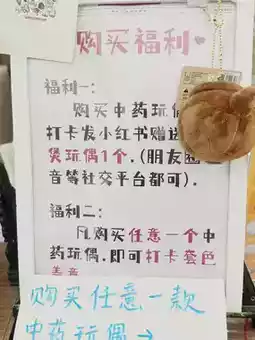 购买福利
福利一:
购买中药玩偶
打卡发小红书赠送
煲玩偶1个.(朋友圈
音等社交平台都可).
福利二:
凡购买任意一个中
药玩偶.即可打卡套色
盖章
购买任意一款
中药玩偶→